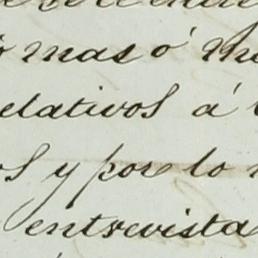 o mas ó
elativos á
os y por lo
entrevista